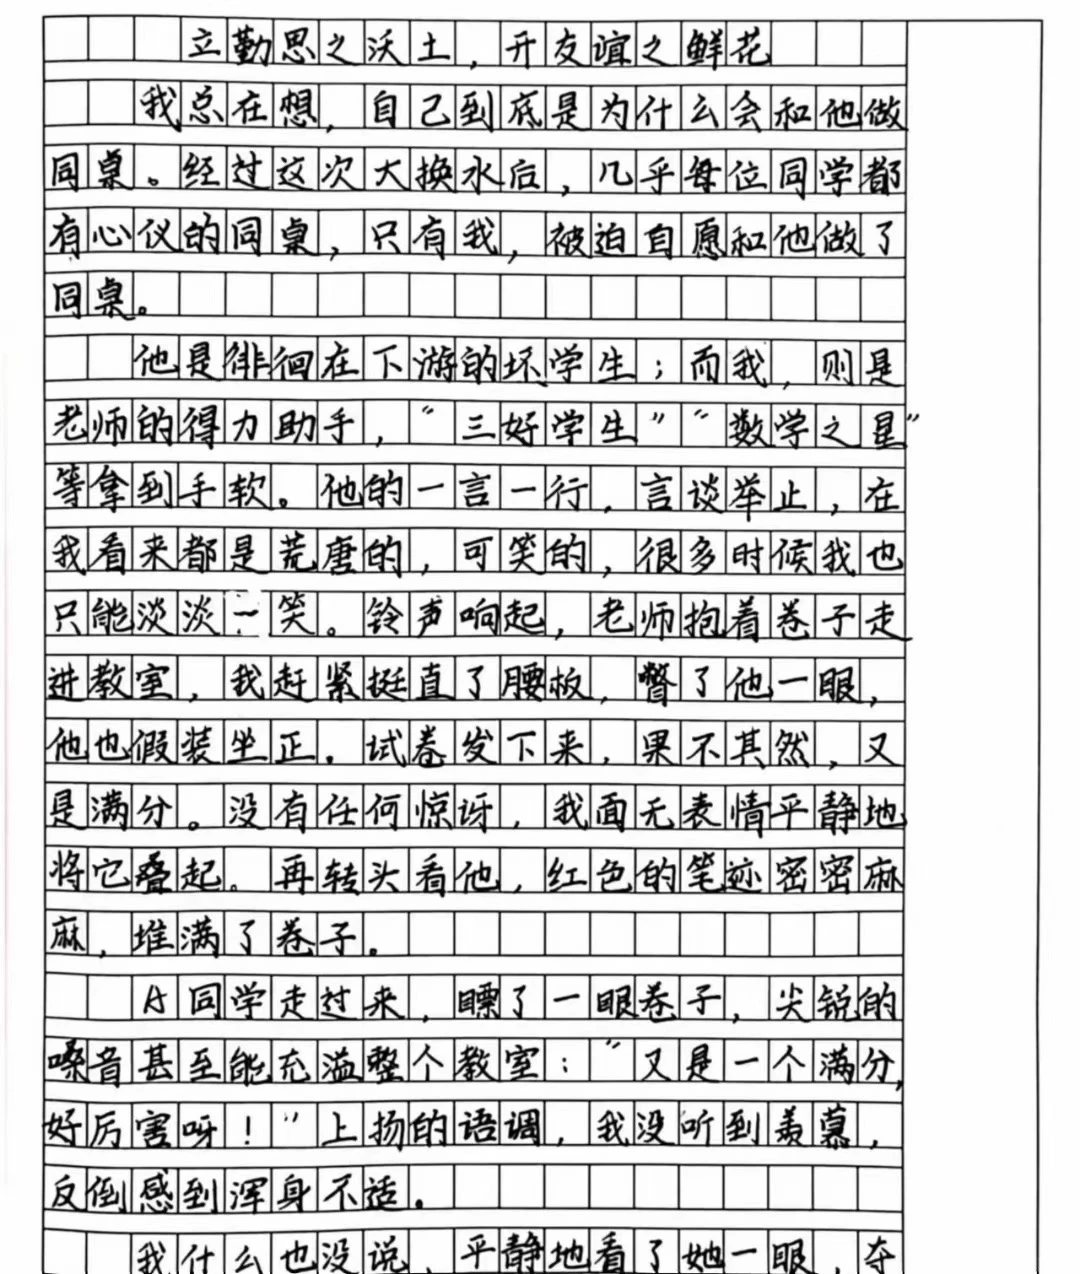 立勤思之沃土，开友谊之鲜花
我总在想，自己到底是为什么会和他做
同桌。经过这次大换水后，几乎每位同学都
有心仪的同桌，只有我，被迫自愿和他做了
同桌。
他是徘徊在下游的坏学生；而我，则是
老师的得力助手，“三好学生”“数学之星”
等拿到手软。他的一言一行，言谈举止，在
我看来都是荒唐的，可笑的，很多时候我也
只能淡淡一笑。铃声响起，老师抱着卷子走
进教室，我赶紧挺直了腰板，瞥了他一眼，
他也假装坐正。试卷发下来，果不其然，又
是满分。没有任何惊讶，我面无表情平静地
将它叠起。再转头看他，红色的笔迹密密麻
麻，堆满了卷子。
A同学走过来，瞟了一眼卷子，尖锐的
嗓音甚至能充溢整个教室：“又是一个满分，
好厉害呀！”上扬的语调，我没听到羡慕，
反倒感到浑身不适。
我什么也没说，平静地看了她一眼，夺